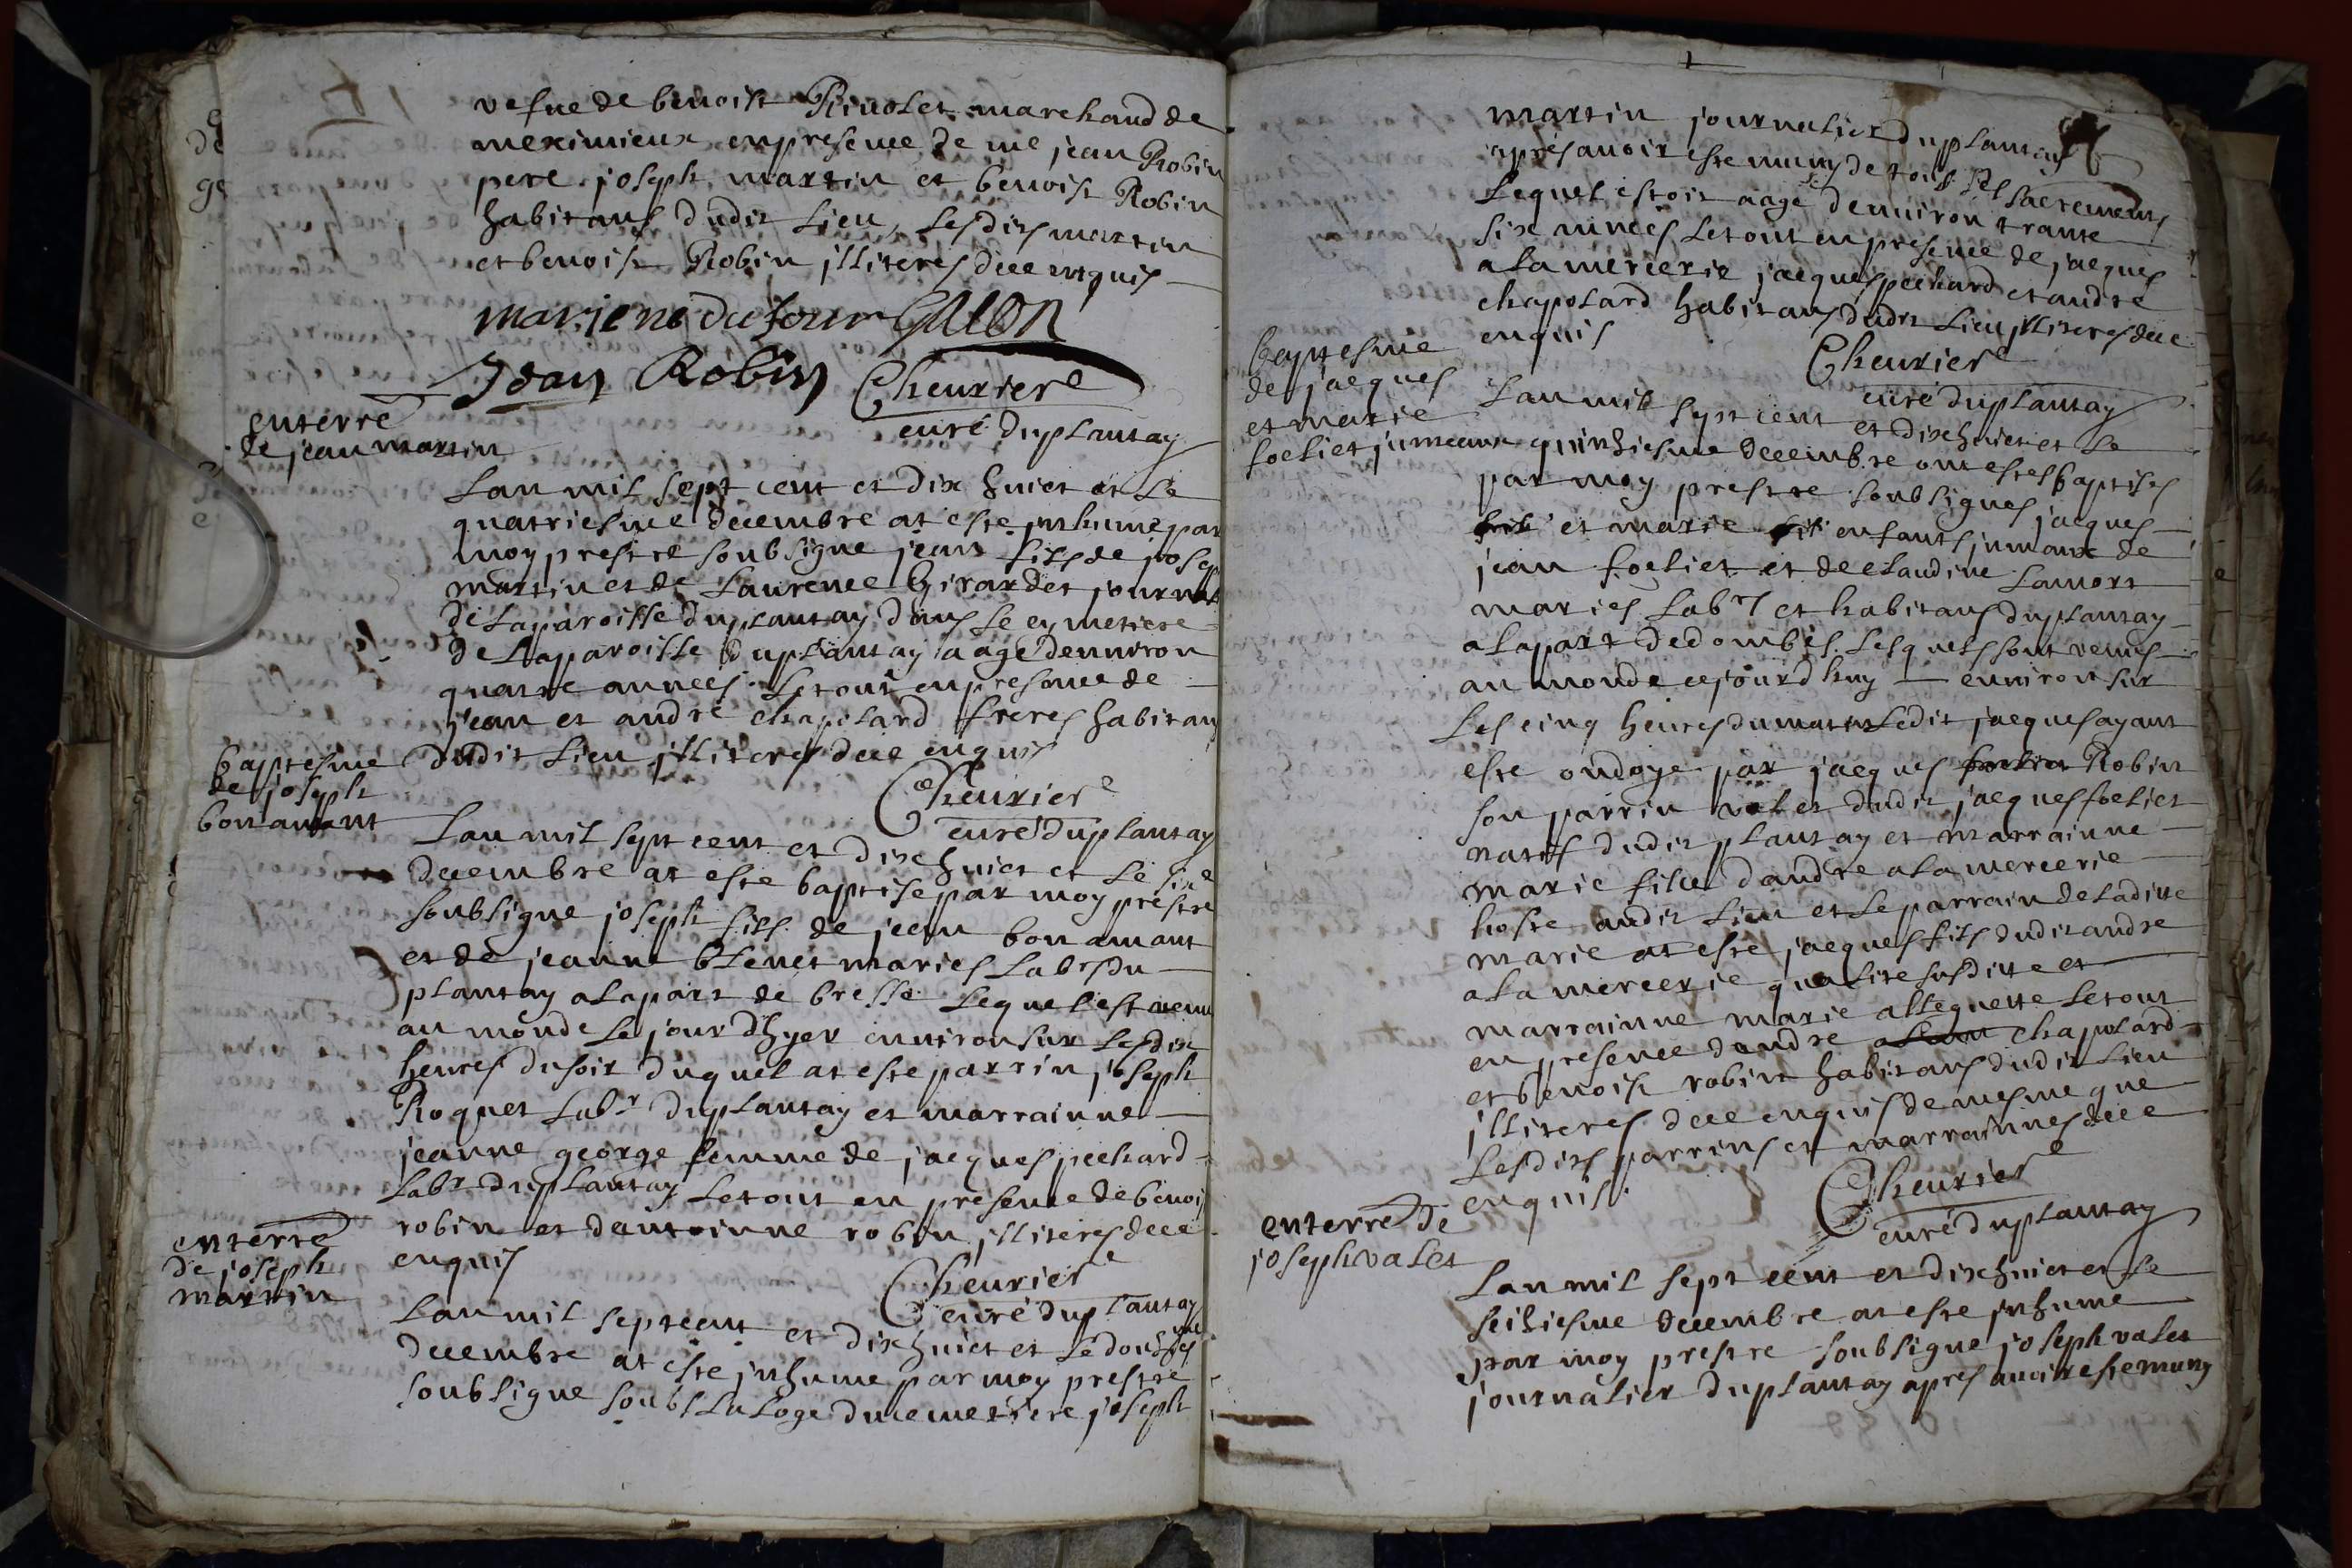 vefue de benoist Riuolet marchand de
meximieux en presence de me jean Robin
pere joseph martin et benoist Robin
habitans dudit lieu, lesdits martin
et benoist Robin illiteres de ce enquis
mariene dufour GUION
Jean Robin Cheurier
curé du plantay
enterre
de jean martin
Lan mil sept cent et dix huict et le
quatriesme decembre at este inhume par
moy prestre soubsigne jean fils de josep
martin et de Laurence Girardet journal
de la paroisse du plantay dans le cymetiere
de la paroisse du plantay aagé denuiron
quatre annees. Le tout en presence de
jean et andre chapolard freres habitans
dudit lieu illiteres de ce enquis
Cheurier
curé du plantay
baptesme
de joseph
bonamant
Lan mil sept cent et dix huict et le six
decembre at este baptise par moy prestre
soubsigne joseph fils de jean bonamant
et de jeanne blenet maries labrs du
plantay a la part de bresse lequel est venu
au monde le jour dhyer enuiron sur les dix
heures du soir duquel at este parrin joseph
Roquet labr du plantay et marrainne
jeanne george femme de jacques pechard
labr du plantay le tout en presence de benoi
robin et dantoinne robin illiteres de ce
enquis
Cheurier
curé du plantay
enterre
de joseph
martin
Lan mil sept cent et dix huict et le douziesme
decembre at este inhume par moy prestre
soubsigne soubs la loge du cemetiere joseph
martin journalier du plantay
apres auoir este muny de tous ses sacremens
lequel estoit aagé denuiron trante
six annees le tout en presence de jacques
alamercerie jacques pechard et andre
chapolard habitans dudit lieu illiteres de ce
enquis
Cheurier
curé du plantay
baptesme
de jacques
et marie
foeliet jumeaux
Lan mil sept cent et dix huict et le
quinziesme decembre ont estes baptises
par moy prestre soubsignes jacques
et marie enfants jumaux de
jean foeliet et de claudine Lamort
maries labrs et habitans du plantay
a la part de dombes. Lesquels sont venus
au monde ce jourdhuy enuiron sur
les cinq heures du matin ledit jacques ayant
este ondoye par jacques foeliet Robin
son parrin valet dudit jacques foeliet
natif dudit plantay et marrainne
marie fille dandre alamercerie
hoste audit lieu et le parrain de laditte
marie at este jacques fils dudit andre
alamercerie qualite susditte et
marrainne marie allequette le tout
en presence dandre chapolard
et benoist robin habitans dudit lieu
illiteres de ce enquis de mesme que
lesdits parrins et marrainnes de ce
enquis.
Cheurier
curé du plantay
enterre de
joseph valet
Lan mil sept cent et dix huict et le
seiziesme decembre at este inhume
par moy prestre soubsigne joseph valet
journalier du plantay apres auoir este muny